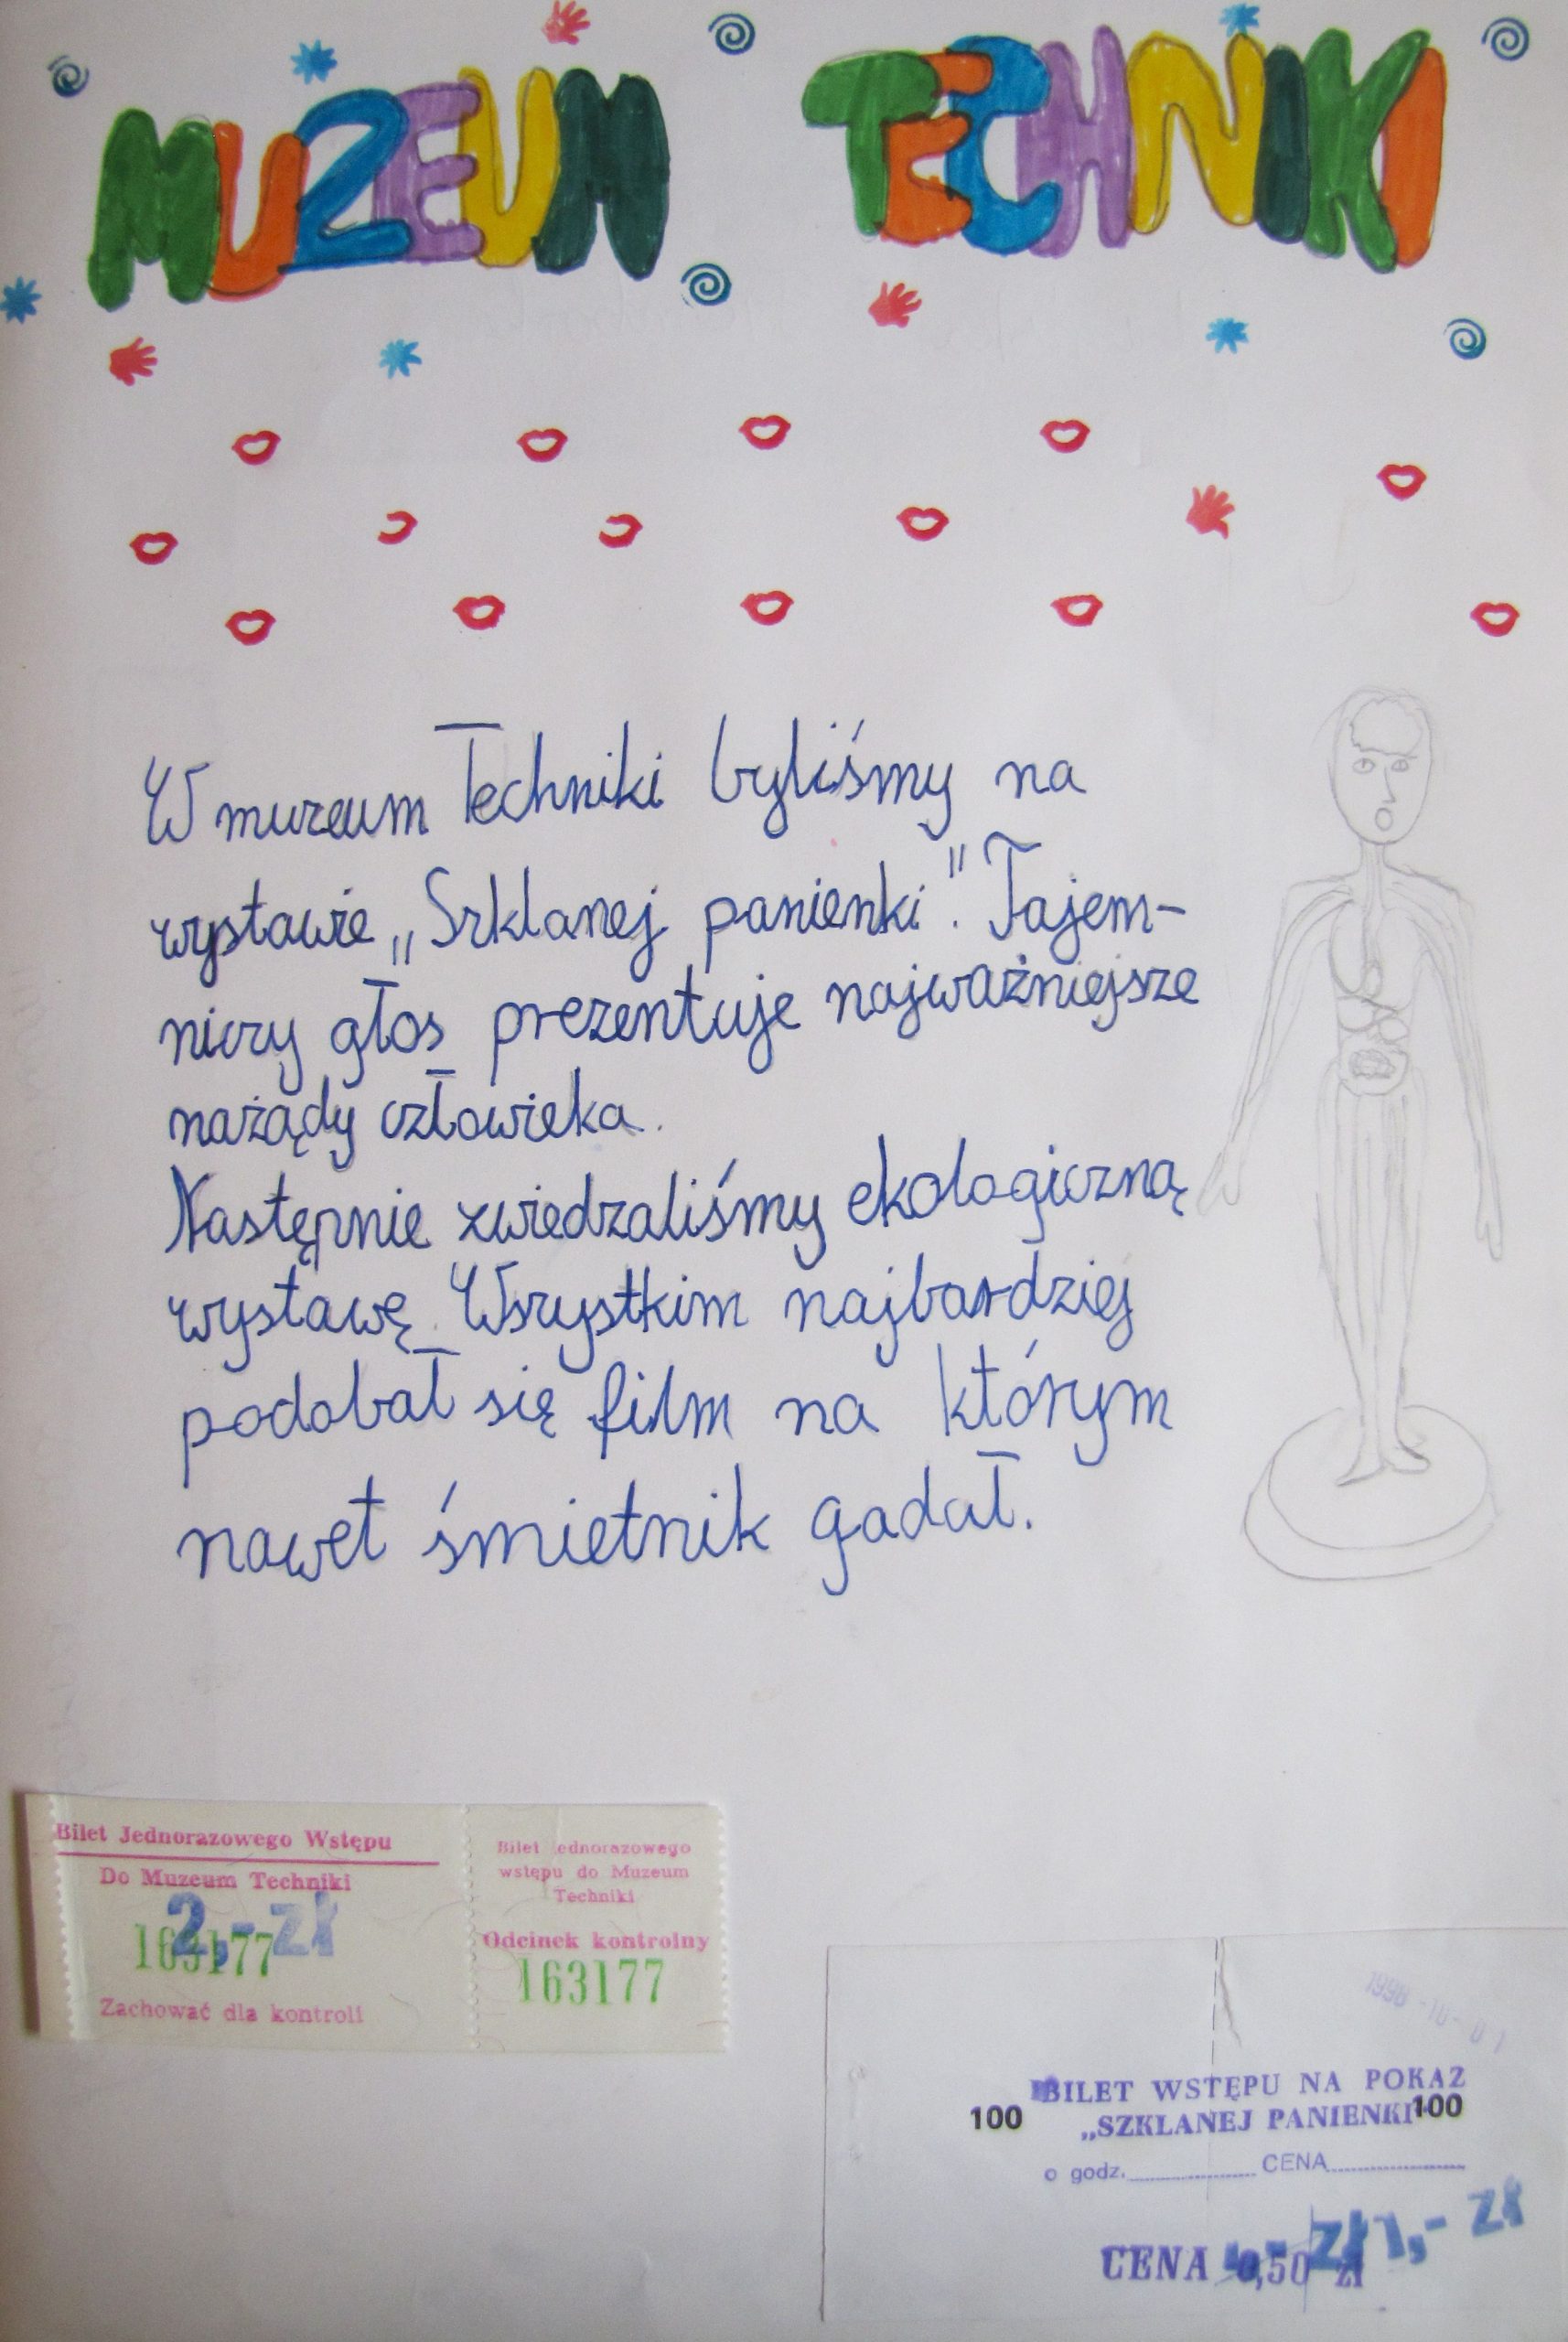 MUZEUM TECHNIKI
W muzeum Techniki byliśmy na
wystawie „Szklanej panienki". Tajem-
niczy głos prezentuje najważniejsze
nażądy człowieka.
Następnie zwiedzaliśmy ekologiczną
wystawę. Wszystkim najbardziej
podobał się film na którym
nawet śmietnik gadał.
Bilet Jednorazowego Wstępu
Do Muzeum Techniki
2,- zł
163177
Zachować dla kontroli
Bilet ednorazowego
wstępu do Muzeum
Techniki
Odcinek kontrolny
163177
BILET WSTĘPU NA POKAZ
100 „SZKLANEJ PANIENKI" 100
o godz. CENA
1,- zł
CENA 0,50 zł